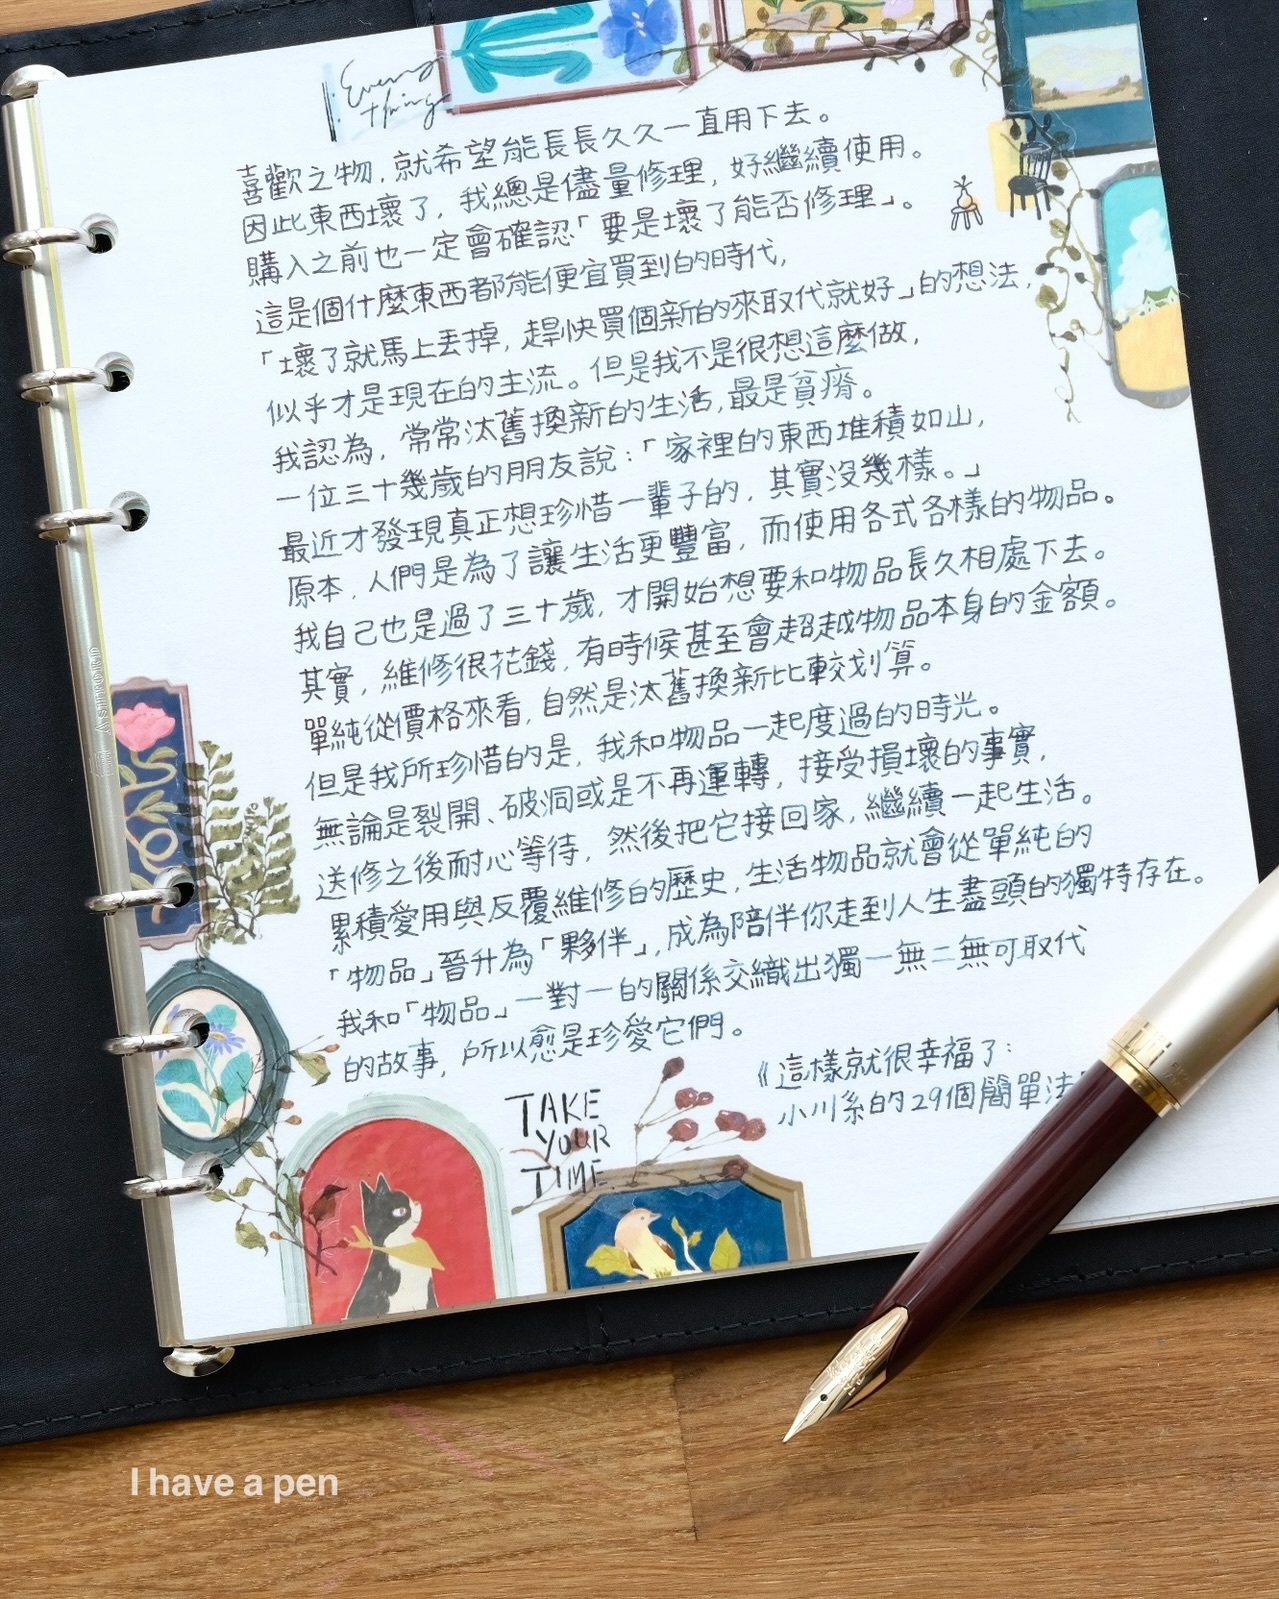 Every
thing
喜歡之物，就希望能長長久久一直用下去。
因此東西壞了，我總是儘量修理，好繼續使用。
購入之前也一定會確認「要是壞了能否修理」。
這是個什麼東西都能便宜買到的時代，
「壞了就馬上丟掉，趕快買個新的來取代就好」的想法，
似乎才是現在的主流。但是我不是很想這麼做，
我認為，常常汰舊換新的生活，最是貧瘠。
一位三十幾歲的朋友說：「家裡的東西堆積如山，
最近才發現真正想珍惜一輩子的，其實沒幾樣。」
原本，人們是為了讓生活更豐富，而使用各式各樣的物品。
我自己也是過了三十歲，才開始想要和物品長久相處下去。
其實，維修很花錢，有時候甚至會超越物品本身的金額。
單純從價格來看，自然是汰舊換新比較划算。
但是我所珍惜的是，我和物品一起度過的時光。
無論是裂開、破洞或是不再運轉，接受損壞的事實，
送修之後耐心等待，然後把它接回家，繼續一起生活。
累積愛用與反覆維修的歷史，生活物品就會從單純的
「物品」晉升為「夥伴」，成為陪伴你走到人生盡頭的獨特存在。
我和「物品」一對一的關係交織出獨一無二無可取代
的故事，所以愈是珍愛它們。
《這樣就很幸福了：
小川糸的29個簡單法
TAKE
YOUR
TIME
I have a pen